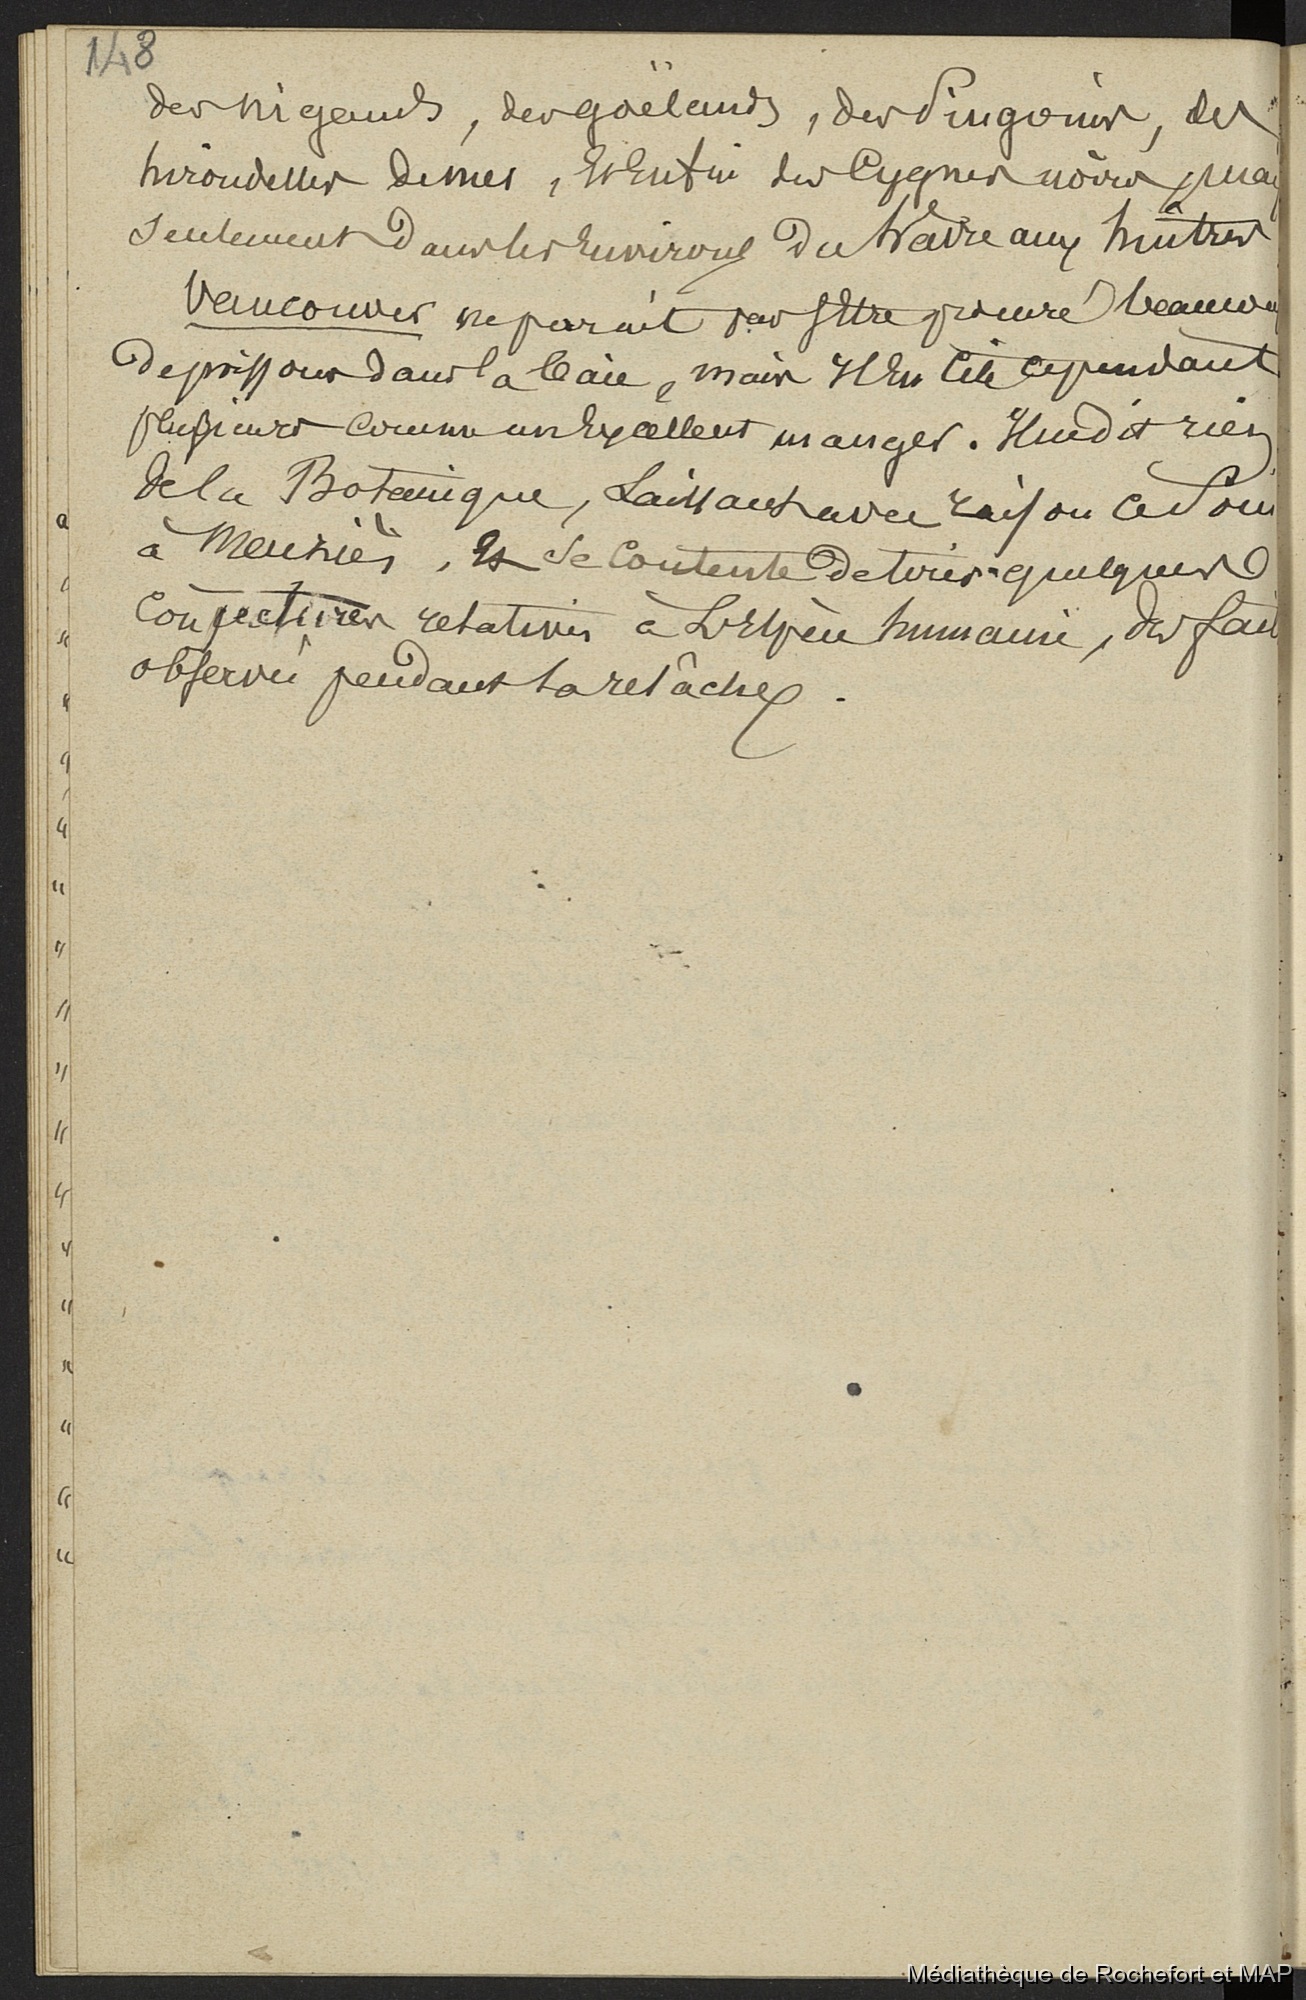 148
des nigauds, des goëlands, des Pingouins, des
hirondelles de mer, et enfin des Cygnes noirs, mai
seulement dans les Environs du hâvre aux huîtres
Vancouver ne parait pas s'être procuré beaucou
de poissons dans la baie, mais Il en Cite cependant
plusieurs comme un Excellent manger. Il ne dit rien
de la Botanique, Laissant avec raison ce Soin
à Menziès, Et se Contente de tirer quelques
Conjectures relatives à L'Espèce humaine, des fait
observés pendant la relâche.
Médiathèque de Rochefort et MAP